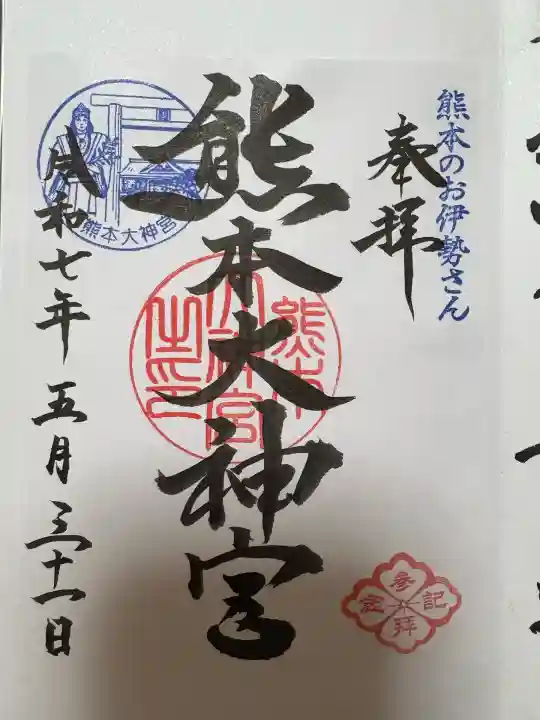 熊本のお伊勢さん
奉拝
熊本大神宮
熊本大神宮之印
熊本大神宮
令和七年 五月 三十一日
参拝記念